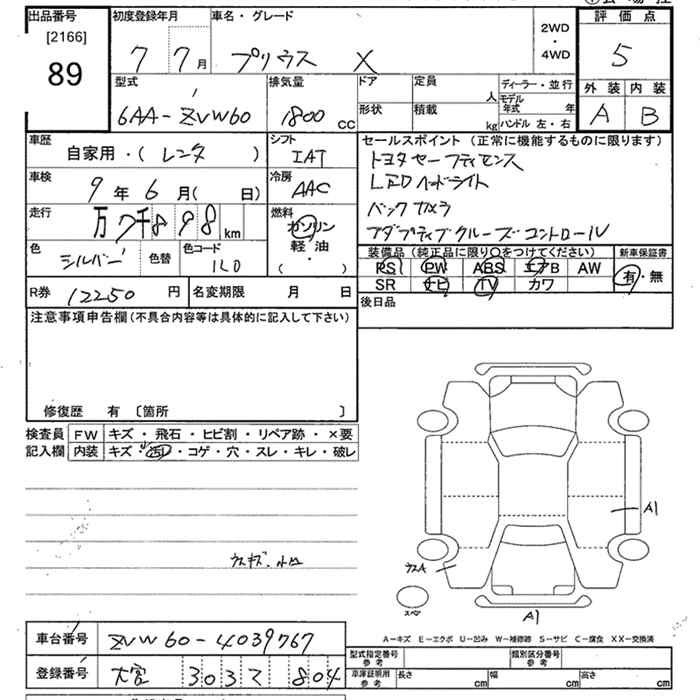 出品番号
[2166]
89
初度登録年月
7 7月
車名・グレード
プリウス X
2WD
・
4WD
評価点
5
外装 内装
A B
型式
6AA-ZVW60
排気量
1800 CC
ドア
形状
定員
人
積載
kg
ディーラー・並行
モデル年式 年
ハンドル 左・右
車歴
自家用・( レンタ )
シフト
IAT
車検
9年6月( 日)
冷房
AAC
走行
万7千898 km
燃料
ガソリン
軽・油
( )
色
シルバー
色替
色コード
1L0
セールスポイント (正常に機能するものに限ります)
トヨタセーフティセンス
LEDヘッドライト
バックカメラ
アダプティブクルーズコントロール
装備品 (純正品に限り○をつけてください)
新車保証書
PS PW ABS エアB AW
SR ナビ TV カワ
有・無
R券 12250 円
名変期限 月 日
後日品
注意事項申告欄(不具合内容等は具体的に記入して下さい)
修復歴 有 〔箇所 〕
検査員
記入欄
FW キズ・飛石・ヒビ割・リペア跡・×要
内装 キズ・汚レ・コゲ・穴・スレ・キレ・破レ
A1
ウスA
スペア
A1
A-キズ E-エクボ U-凹み W-補修跡 S-サビ C-腐食 XX-交換済
車台番号 ZVW60-4039767
登録番号 大宮 303 て 804
型式指定番号
参考
類別区分番号
参考
車庫証明用
参考
長さ cm
幅 cm
高さ cm